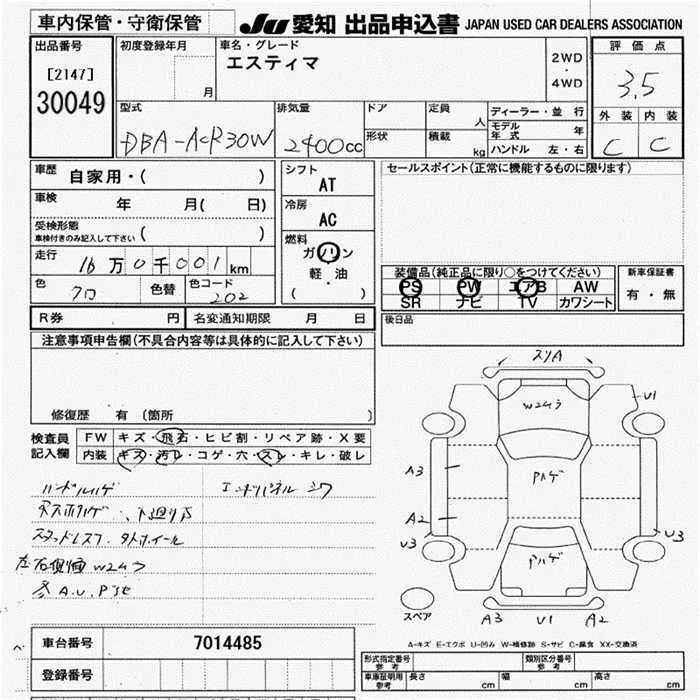 車内保管・守衛保管
JU 愛知 出品申込書 JAPAN USED CAR DEALERS ASSOCIATION
出品番号 [2147] 30049
初度登録年月 月
車名・グレード エスティマ
2WD・4WD
評価点 3.5
外装 内装
C C
型式 DBA-ACR30W
排気量 2400cc
ドア 形状
定員 人 積載 kg
ディーラー・並行
モデル年式 年
ハンドル 左・右
車歴 自家用・( )
車検 年 月( 日)
受検形態 車検付きのみ記入して下さい ( )
走行 16万0千001km
色 クロ 色替 色コード 202
シフト AT
冷房 AC
燃料 ガソリン 軽・油 ( )
セールスポイント(正常に機能するものに限ります)
装備品(純正品に限り○をつけてください)
PS PW エアB AW
SR ナビ TV カワシート
新車保証書 有・無
R券 円 名変通知期限 月 日
後日品
注意事項申告欄(不具合内容等は具体的に記入して下さい)
修復歴 有 (箇所 )
検査員記入欄
FW キズ・飛石・ヒビ割・リペア跡・X要
内装 キズ・汚レ・コゲ・穴・スレ・キレ・破レ
ハンドルハゲ エンドパネルシワ
下廻りサ
スタッドレス
左右側面W2ムラ
スリA
W2ムラ
U1
A3
Pハゲ
A2
U3
U3
Pハゲ
スペア
A3 U1 A2
A-キズ E-エクボ U-凹み W-補修跡 S-サビ C-腐食 XX-交換済
車台番号 7014485
登録番号
型式指定番号 参考 類別区分番号 参考
車庫証明用 参考 長さ cm 幅 cm 高さ cm